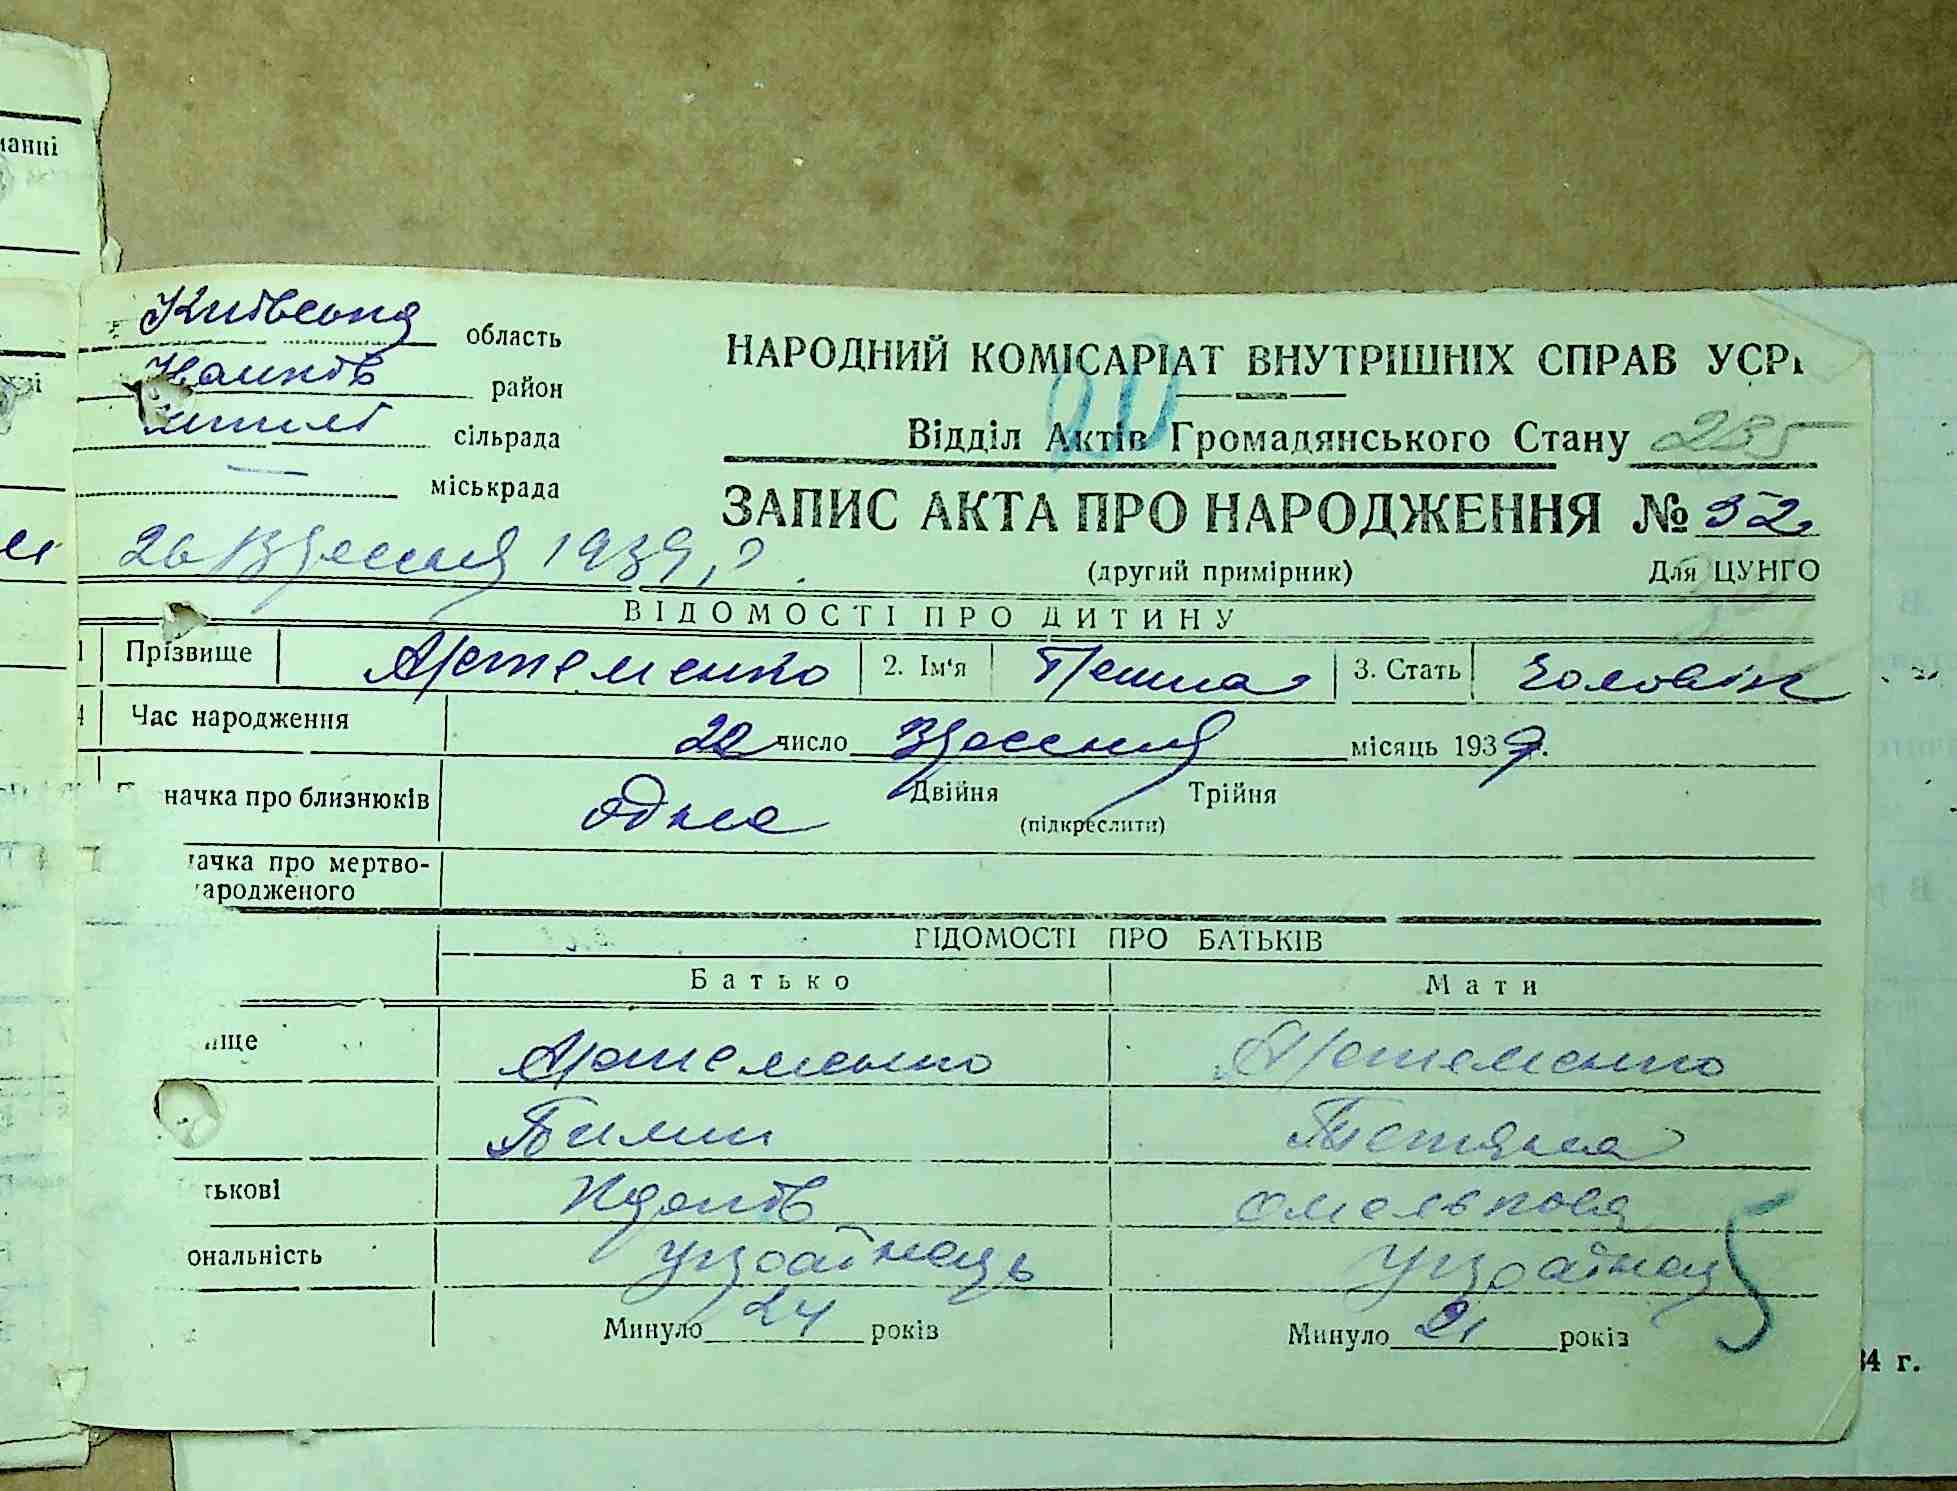 манні
Київська область
район
сільрада
міськрада
НАРОДНИЙ КОМІСАРІАТ ВНУТРІШНІХ СПРАВ УСР
20
Відділ Актів Громадянського Стану 285
ЗАПИС АКТА ПРО НАРОДЖЕННЯ № 52
26 Вересня 1939 р.
(другий примірник) Для ЦУНГО
ВІДОМОСТІ ПРО ДИТИНУ
Прізвище Артеменко 2. Ім'я 3. Стать Чоловік
Час народження 20 число Вересня місяць 1939.
начка про близнюків одне Двійня Трійня
(підкреслити)
ачка про мертво-
ародженого
ІДОМОСТІ ПРО БАТЬКІВ
Батько Мати
ище Артеменко Артеменко
Тетяна
тькові Омелькова
ональність українець українец
Минуло 24 років Минуло 21 років
5
34 г.